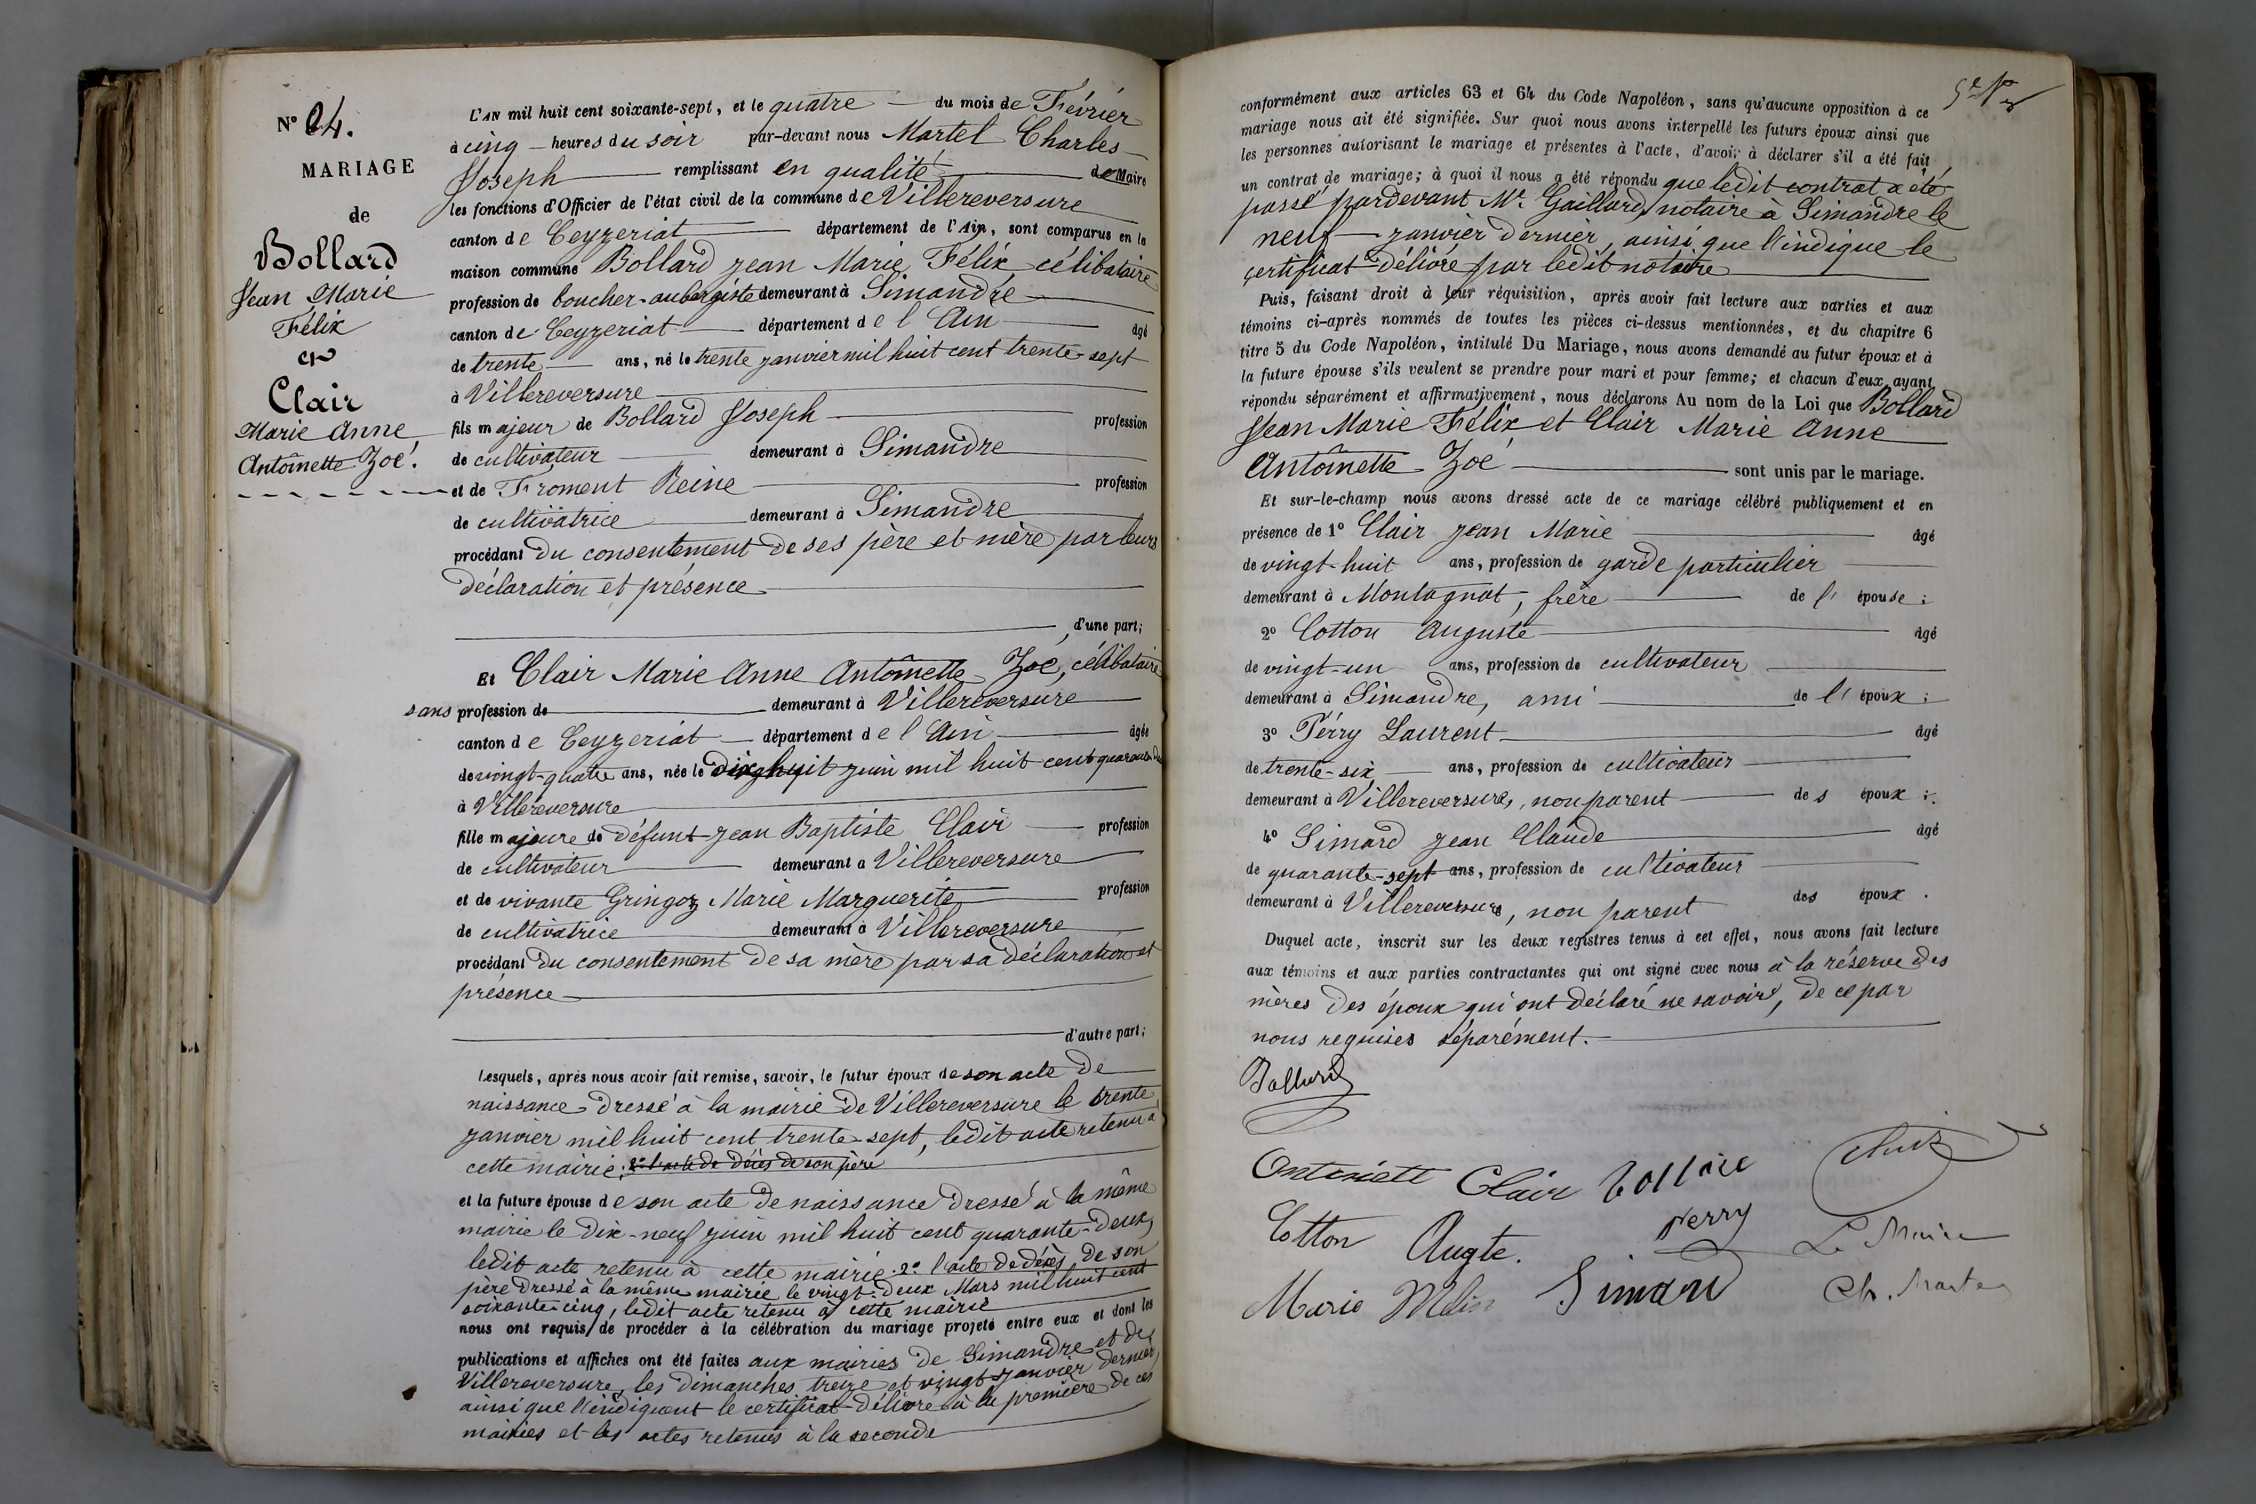 N° 04.
MARIAGE
de
Bollard
Jean Marie
Félix
et
Clair
Marie Anne
Antoinette Zoé.
L'AN mil huit cent soixante-sept, et le quatre du mois de Février
à cinq heures du soir par-devant nous Martel Charles
Joseph remplissant en qualité de Maire
les fonctions d'Officier de l'état civil de la commune de Villereversure
canton de Ceyzeriat département de l'Ain, sont comparus en la
maison commune Bollard Jean Marie Félix, célibataire
profession de boucher-aubergiste demeurant à Simandre
canton de Ceyzeriat département de l'Ain âgé
de trente ans, né le trente janvier mil huit cent trente-sept
à Villereversure
fils majeur de Bollard Joseph profession
de cultivateur demeurant à Simandre
et de Froment Reine profession
de cultivatrice demeurant à Simandre
procédant du consentement de ses père et mère par leurs
déclaration et présence
d'une part;
Et Clair Marie Anne Antoinette Zoé, célibataire
sans profession de demeurant à Villereversure
canton de Ceyzeriat département de l'Ain âgée
de vingt-quatre ans, née le dix-huit juin mil huit cent quarante-deux
à Villereversure
fille majeure de défunt Jean Baptiste Clair profession
de cultivateur demeurant à Villereversure
et de vivante Gringoz Marie Marguerite profession
de cultivatrice demeurant à Villereversure
procédant du consentement de sa mère par sa déclaration et
présence
d'autre part;
Lesquels, après nous avoir fait remise, savoir, le futur époux de son acte de
naissance dressé à la mairie de Villereversure le trente
janvier mil huit cent trente-sept, ledit acte retenu à
cette mairie; 2° l'acte de décès de son père
et la future épouse de son acte de naissance dressé à la même
mairie le dix-neuf juin mil huit cent quarante-deux,
ledit acte retenu à cette mairie. 2° l'acte de décès de son
père dressé à la même mairie le vingt-deux Mars mil huit cent
soixante-cinq, ledit acte retenu à cette mairie
nous ont requis de procéder à la célébration du mariage projeté entre eux et dont les
publications et affiches ont été faites aux mairies de Simandre et de
Villereversure, les dimanches treize et vingt janvier dernier,
ainsi que l'indiquent le certificat délivré à la première de ces
mairies et les actes retenus à la seconde
conformément aux articles 63 et 64 du Code Napoléon, sans qu'aucune opposition à ce
mariage nous ait été signifiée. Sur quoi nous avons interpellé les futurs époux ainsi que
les personnes autorisant le mariage et présentes à l'acte, d'avoir à déclarer s'il a été fait
un contrat de mariage; à quoi il nous a été répondu que ledit contrat a été
passé pardevant Me. Gaillard, notaire à Simandre le
neuf janvier dernier, ainsi que l'indique le
certificat délivré par ledit notaire
Puis, faisant droit à leur réquisition, après avoir fait lecture aux parties et aux
témoins ci-après nommés de toutes les pièces ci-dessus mentionnées, et du chapitre 6
titre 5 du Code Napoléon, intitulé Du Mariage, nous avons demandé au futur époux et à
la future épouse s'ils veulent se prendre pour mari et pour femme; et chacun d'eux ayant
répondu séparément et affirmativement, nous déclarons Au nom de la Loi que Bollard
Jean Marie Félix et Clair Marie Anne
Antoinette Zoé sont unis par le mariage.
Et sur-le-champ nous avons dressé acte de ce mariage célébré publiquement et en
présence de 1° Clair Jean Marie âgé
de vingt-huit ans, profession de garde particulier
demeurant à Montagnat, frère de l'épouse;
2° Cotton Auguste âgé
de vingt-un ans, profession de cultivateur
demeurant à Simandre, ami de l'époux;
3° Férry Laurent âgé
de trente-six ans, profession de cultivateur
demeurant à Villereversure, non parent des époux;
4° Simard Jean Claude âgé
de quarante-sept ans, profession de cultivateur
demeurant à Villereversure, non parent des époux.
Duquel acte, inscrit sur les deux registres tenus à cet effet, nous avons fait lecture
aux témoins et aux parties contractantes qui ont signé avec nous à la réserve des
mères des époux qui ont déclaré ne savoir, de ce par
nous requises séparément.
Bollard
Antoinette Clair Bollard Clair
Cotton Augte. Ferry Le Maire
Marie Simard Ch. Martel